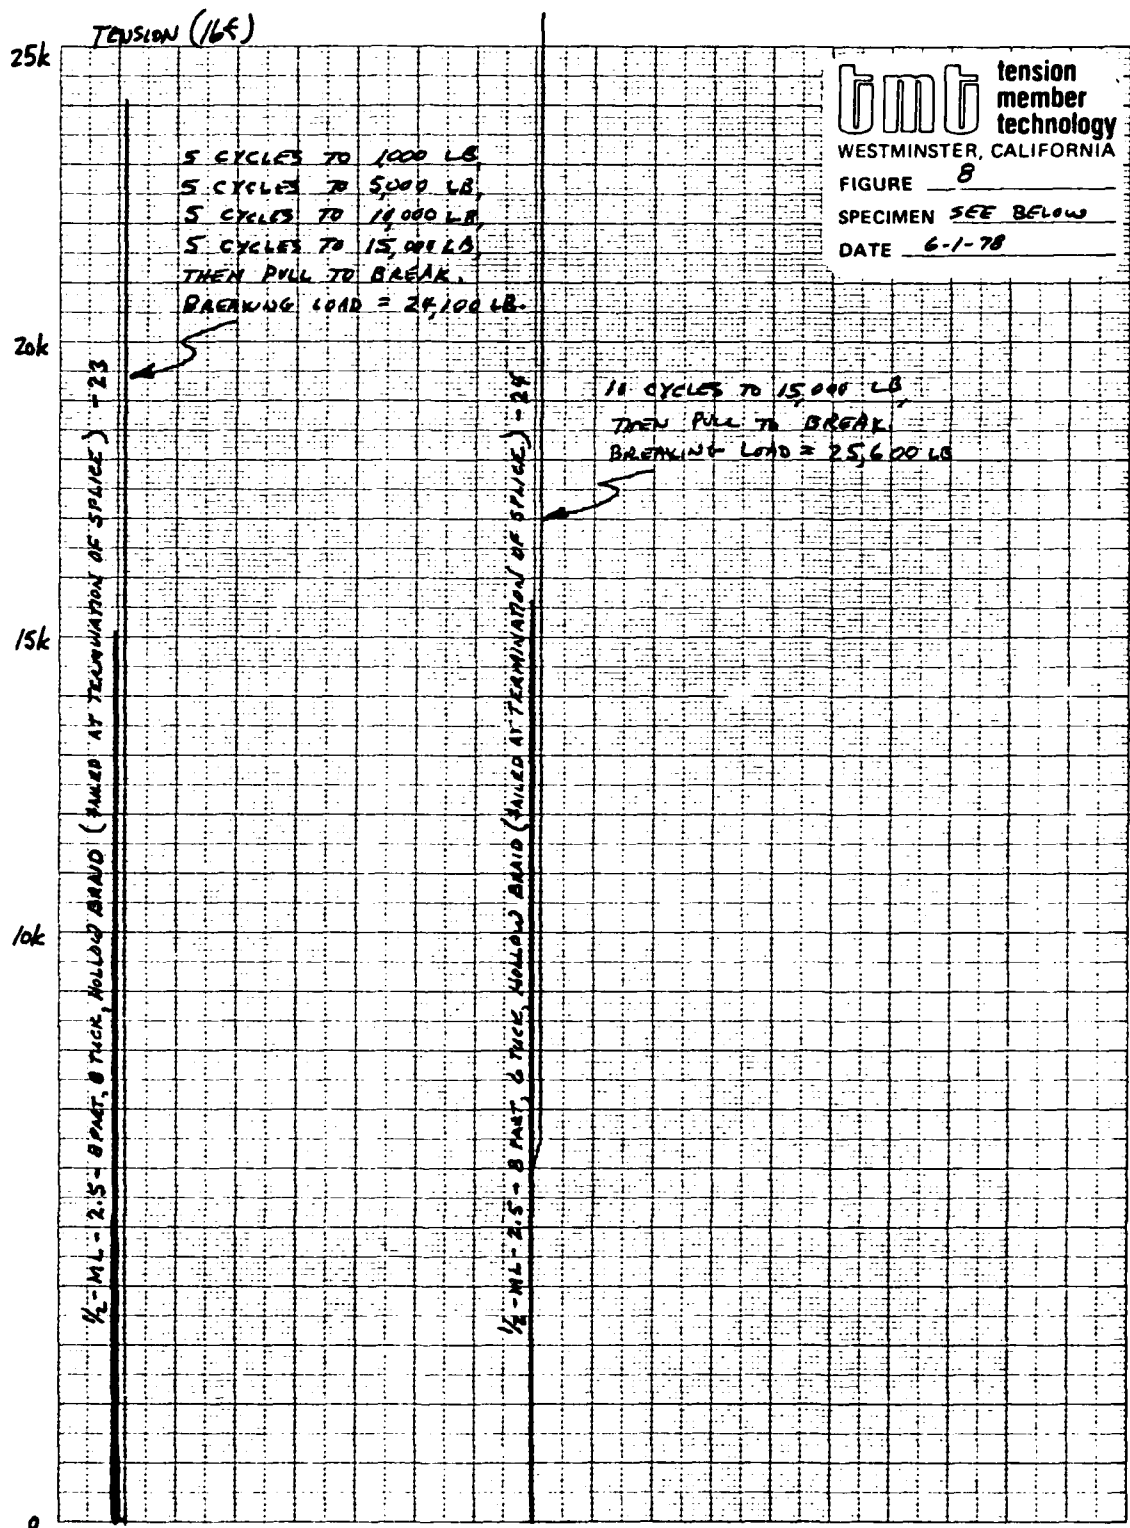 TENSION (lbf)
25k
20k
15k
10k
0
tmt tension
member
technology
WESTMINSTER, CALIFORNIA
FIGURE 8
SPECIMEN SEE BELOW
DATE 6-1-78
5 CYCLES TO 1000 LB,
5 CYCLES TO 5,000 LB,
5 CYCLES TO 10,000 LB,
5 CYCLES TO 15,000 LB,
THEN PULL TO BREAK.
BREAKING LOAD = 24,100 LB.
10 CYCLES TO 15,000 LB,
THEN PULL TO BREAK.
BREAKING LOAD = 25,600 LB
1/2-ML-2.5-8 PART, 8 TUCK, HOLLOW BRAID (FAILED AT TERMINATION OF SPLICE) -23
1/2-ML-2.5-8 PART, 6 TUCK, HOLLOW BRAID (FAILED AT TERMINATION OF SPLICE) -24